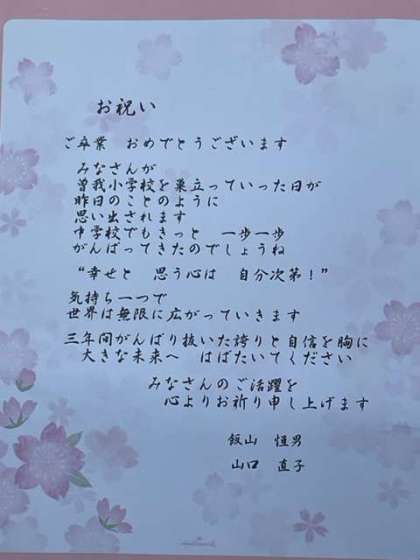 お祝い
ご卒業　おめでとうございます
みなさんが
曽我小学校を巣立っていった日が
昨日のことのように
思い出されます
中学校でもきっと　一歩一歩
がんばってきたのでしょうね
“幸せと　思う心は　自分次第！”
気持ち一つで
世界は無限に広がっていきます
三年間がんばり抜いた誇りと自信を胸に
大きな未来へ　はばたいてください
みなさんのご活躍を
心よりお祈り申し上げます
飯山　恒男
山口　直子